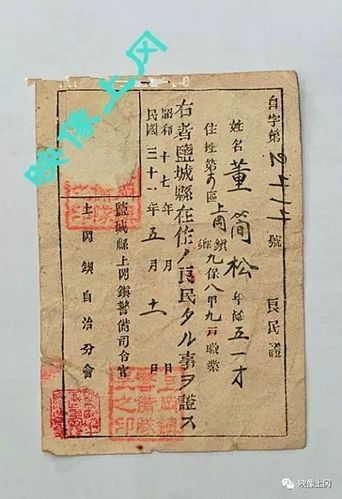 映像上冈
自字第2414號 良民證
姓名 董簡松 年齡 五一才
住址第 區上岡鎮 九保八甲九戸 職業
右者鹽城縣在住ノ良民タル事ヲ證ス
昭和十七年 月 日
民國三十一年五月十二日
鹽城縣上岡鎮警備司令官
上岡鎮自治分會
映像上冈